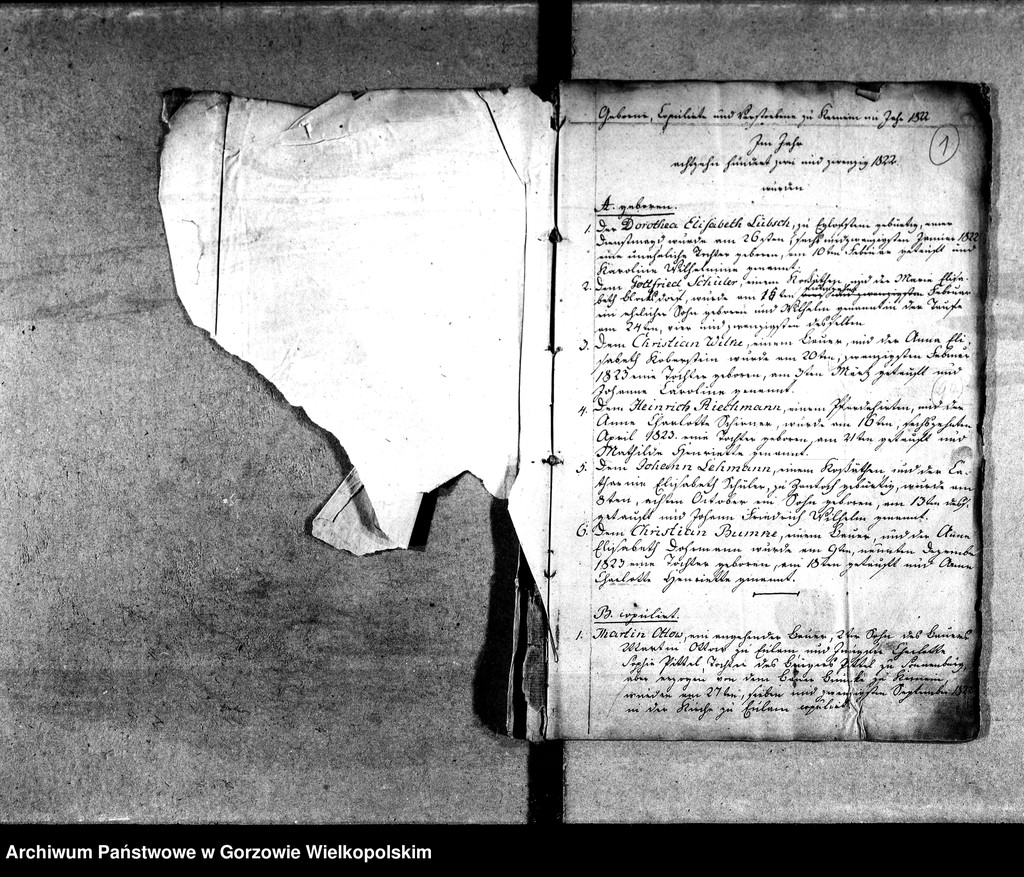 Geborne, Copulirte und Verstorbene zu Kemein im Jahr 1822
1
Im Jahr
achtzehn hundert zwei und zwanzig 1822.
wurden
A. geboren.
1. Der Dorothea Elisabeth Lübsch, zu gebürtig, einer
Dienstmagd wurde am 26sten, sechs und zwanzigsten Januar 1822
eine uneheliche Tochter geboren, am 10ten Februar getauft und
Karoline Wilhelmine genannt.
2. Dem Gottfried Schüler, einem Kossäthen und der Marie Elisa-
beth wurde am 16ten Februar
ein ehelicher Sohn geboren und Wilhelm genannt in der Taufe
am 24ten, vier und zwanzigsten desselben.
3. Dem Christian Wilke, einem Bauer, und der Anne Eli-
sabeth Koberstein wurde am 20ten, zwanzigsten Februar
1823 eine Tochter geboren, am 3ten März getauft und
Johanne Caroline genannt.
4. Dem Heinrich Riethmann, einem Pferdehirten, und der
Anne Charlotte Schirmer, wurde am 16ten, sechszehnten
April 1823. eine Tochter geboren, am 21ten getauft und
Mathilde Henriette genannt.
5. Dem Johann Lehmann, einem Kossäthen und der Ca-
tharine Elisabeth Schüler, zu Zantoch gebürtig, wurde am
8ten, achten October ein Sohn geboren, am 13ten dess.
getauft und Johann Friedrich Wilhelm genannt.
6. Dem Christian Bumke, einem Bauer, und der Anne
Elisabeth Dohrmann wurde am 9ten, neunten Dezember
1823 eine Tochter geboren, am 18ten getauft und Anne
Charlotte Henriette genannt.
B. copulirt.
1. Martin Ottow, ein angehender Bauer, 2ter Sohn des Bauers
Martin Ottow zu Eulam und Jungfer Charlotte
Sophie Pittel, Tochter des Bürgers Pittel zu Sonnenburg,
aber erzogen von dem Bauer Bumke zu Kemein,
wurden am 27ten, sieben und zwanzigsten September 1822
in der Kirche zu Eulam copulirt.
Archiwum Państwowe w Gorzowie Wielkopolskim